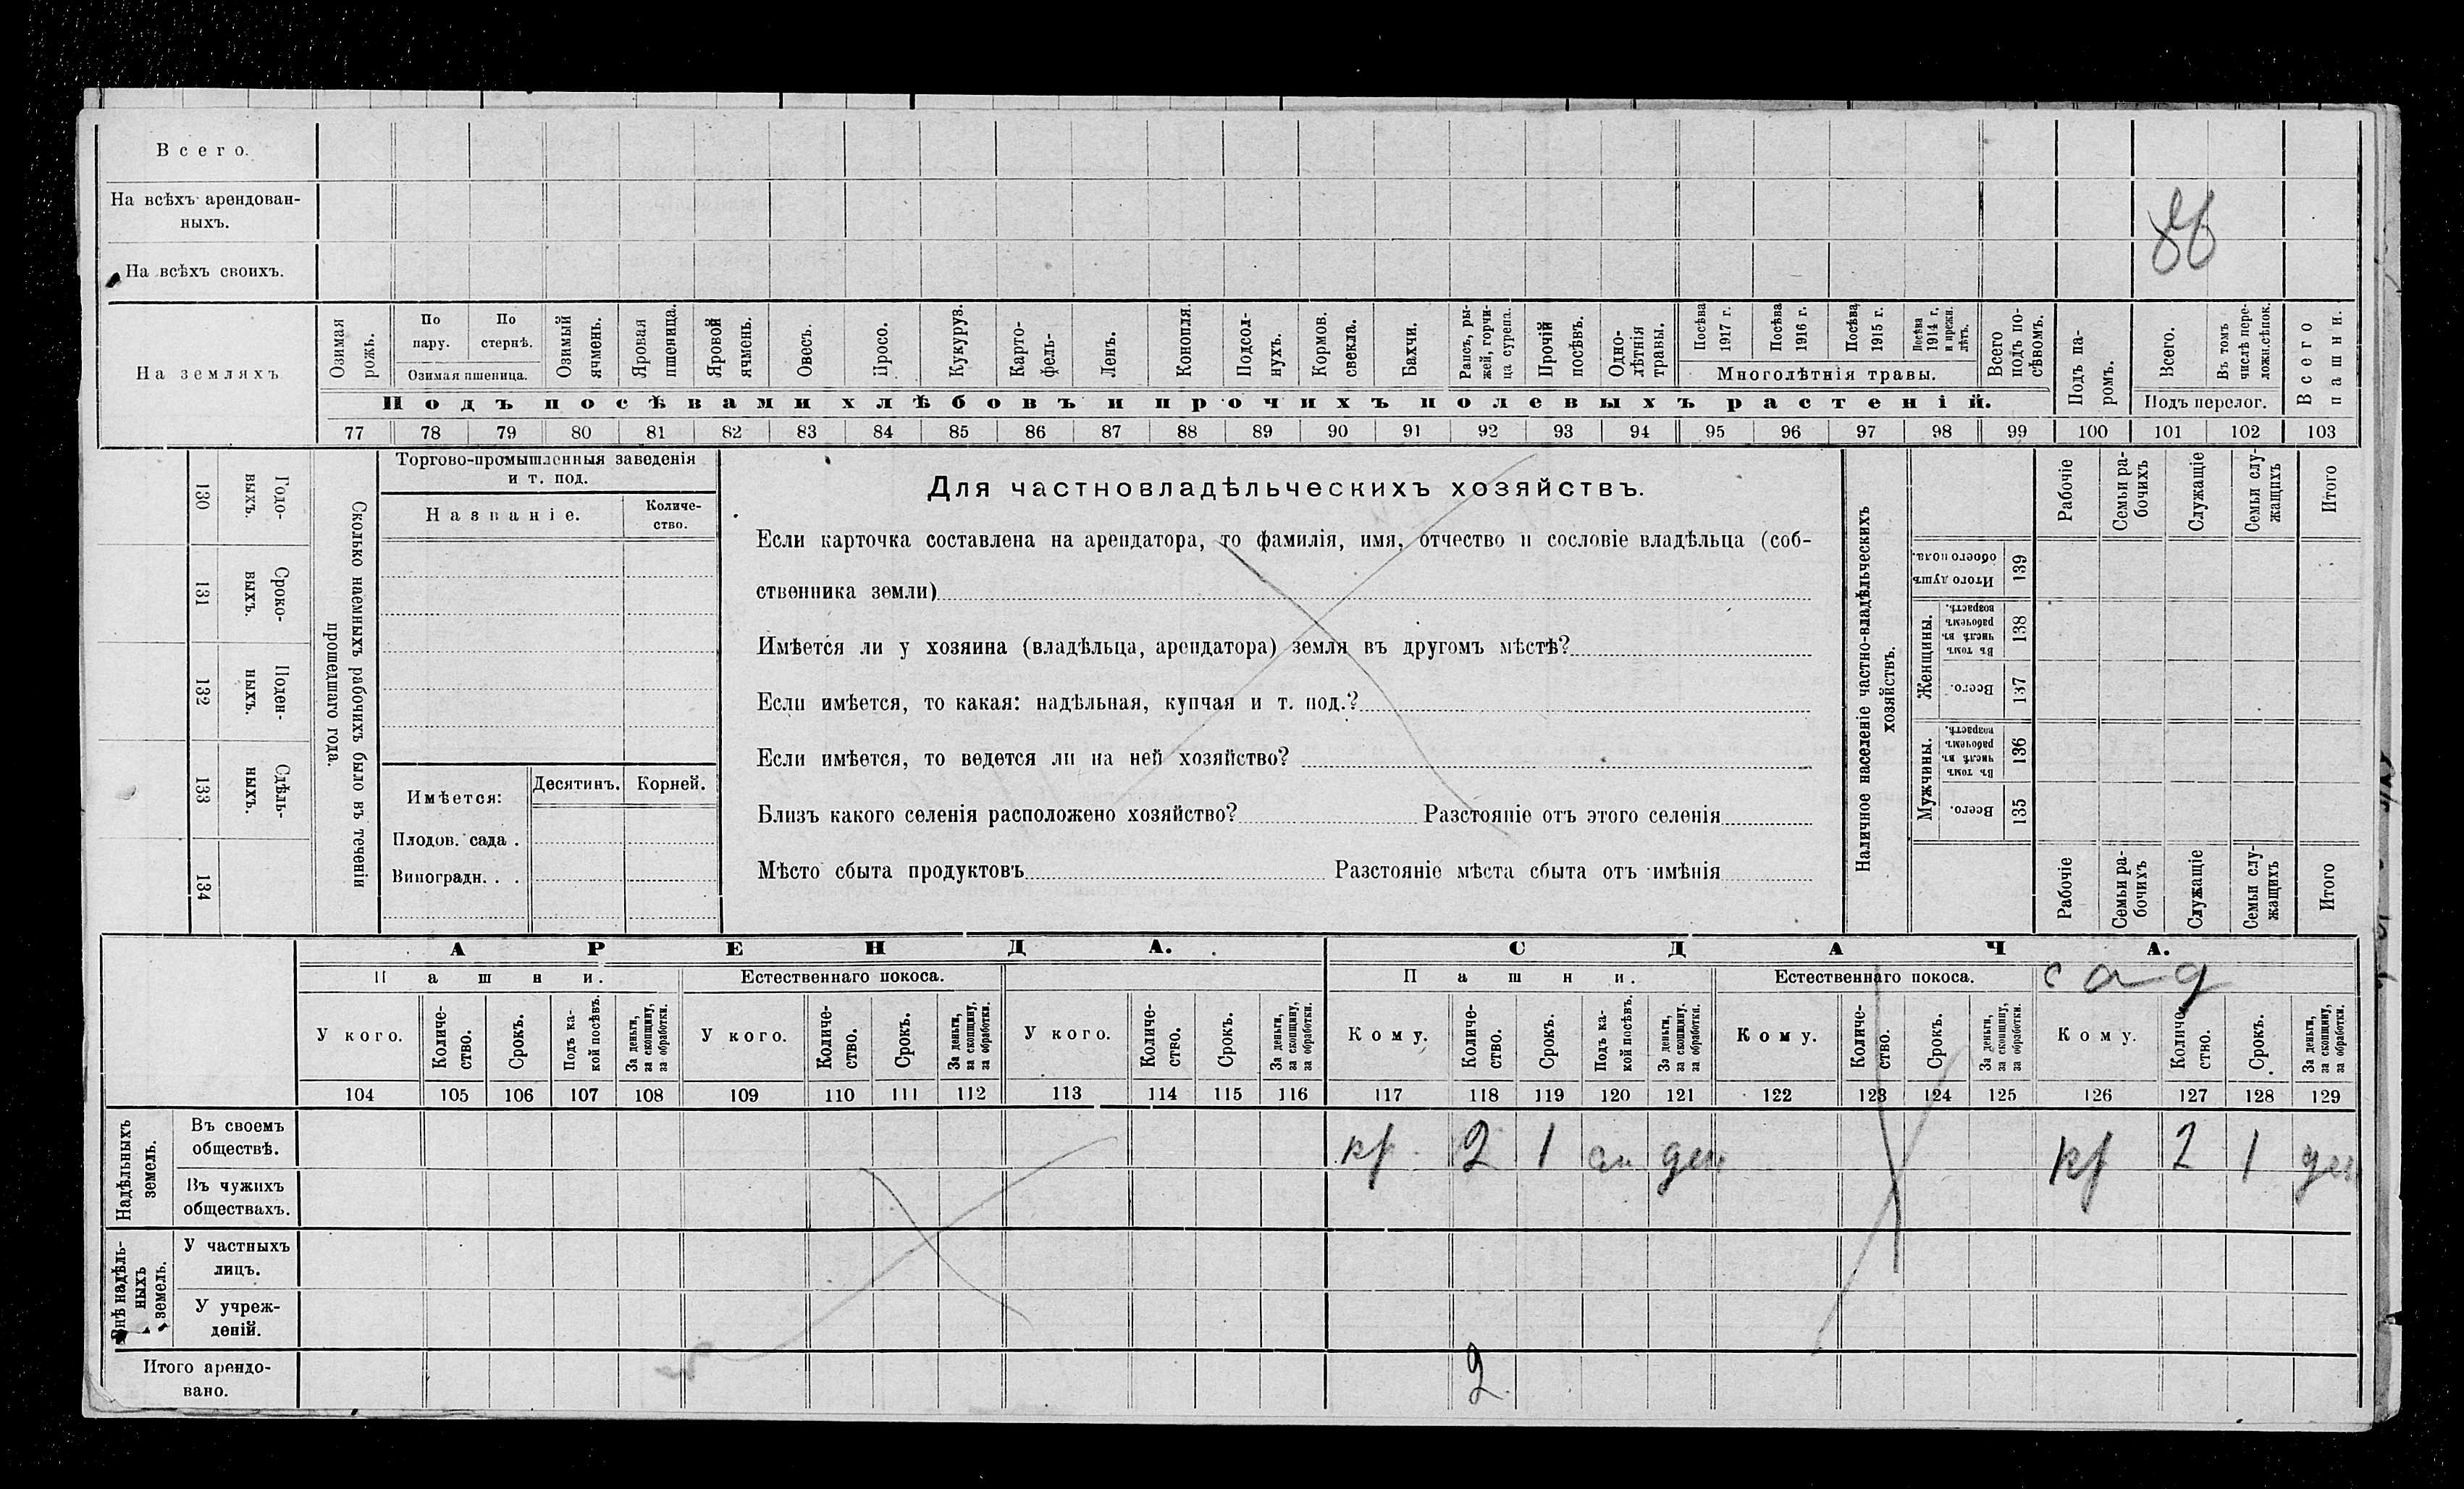 Всего.
На всѣхъ арендован-
ныхъ.
На всѣхъ своихъ.
На земляхъ
Озимая рожь.
По пару.
По стернѣ.
Озимая пшеница.
Озимый ячмень.
Яровая пшеница.
Яровой ячмень.
Овесъ.
Просо.
Кукуруз.
Карто-
фель-
Ленъ.
Конопля.
Подсол-
нухъ.
Кормов. свекла.
Бахчи.
Рапсъ, ры-
жей, горчи-
ца сурепа.
Прочій посѣвъ.
Одно-
лѣтнія травы.
Посѣва 1917 г.
Посѣва 1916 г.
Посѣва 1915 г.
Посѣва 1914 г. и прежн. лѣтъ.
Многолѣтнія травы.
Всего подъ по-
сѣвомъ.
Подъ посѣвами хлѣбовъ и прочихъ полевыхъ растеній.
Подъ па-
ромъ.
Всего.
Въ томъ числѣ пере-
ложн.сѣнок.
Подъ перелог.
Всего пашни.
77 78 79 80 81 82 83 84 85 86 87 88 89 90 91 92 93 94 95 96 97 98 99 100 101 102 103
130 Годо-
выхъ.
131 Сроко-
выхъ.
132 Поден-
ныхъ.
133 Сдѣль-
ныхъ.
134
Сколько наемныхъ рабочихъ было въ теченіи
прошедшаго года.
Торгово-промышленныя заведенія
и т. под.
Названіе.
Количе-
ство.
Имѣется:
Десятинъ.
Корней.
Плодов. сада .
Виноградн. . .
Для частновладѣльческихъ хозяйствъ.
Если карточка составлена на арендатора, то фамилія, имя, отчество и сословіе владѣльца (соб-
ственника земли)
Имѣется ли у хозяина (владѣльца, арендатора) земля въ другомъ мѣстѣ?
Если имѣется, то какая: надѣльная, купчая и т. под.?
Если имѣется, то ведется ли на ней хозяйство?
Близъ какого селенія расположено хозяйство? Разстояніе отъ этого селенія
Мѣсто сбыта продуктовъ Разстояніе мѣста сбыта отъ имѣнія
Наличное населеніе частно-владѣльческихъ
хозяйствъ.
Рабочіе
Семьи ра-
бочихъ
Служащіе
Семьи слу-
жащихъ
Итого
Итого душъ обоего пола. 139
Женщины.
Въ томъ числѣ въ рабочемъ возрастѣ. 138
Всего. 137
Мужчины.
Въ томъ числѣ въ рабочемъ возрастѣ. 136
Всего. 135
Рабочіе
Семьи ра-
бочихъ
Служащіе
Семьи слу-
жащихъ
Итого
АРЕНДА.
СДАЧА.
Пашни.
Естественнаго покоса.
Пашни.
Естественнаго покоса.
сад
У кого.
Количе-
ство.
Срокъ.
Подъ ка-
кой посѣвъ.
За деньги, за скопщину, за обработки.
У кого.
Количе-
ство.
Срокъ.
За деньги, за скопщину, за обработки.
У кого.
Количе-
ство.
Срокъ.
За деньги, за скопщину, за обработки.
Кому.
Количе-
ство.
Срокъ.
Подъ ка-
кой посѣвъ.
За деньги, за скопщину, за обработки.
Кому.
Количе-
ство.
Срокъ.
За деньги, за скопщину, за обработки.
Кому.
Количе-
ство.
Срокъ.
За деньги, за скопщину, за обработки.
104 105 106 107 108 109 110 111 112 113 114 115 116 117 118 119 120 121 122 123 124 125 126 127 128 129
Надѣльныхъ земель.
Въ своемъ
обществѣ.
кр 2 1 ден кр 2 1 ден
Въ чужихъ
обществахъ.
Внѣ надѣль-
ныхъ земель.
У частныхъ
лицъ.
У учреж-
деній.
Итого арендо-
вано.
2